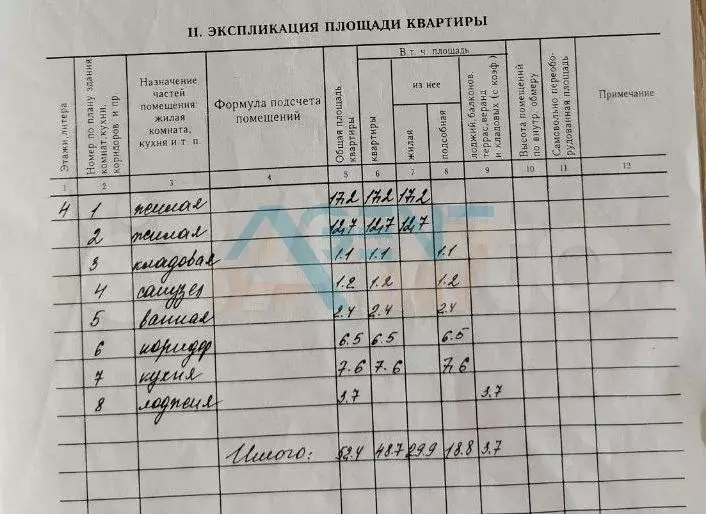 II. ЭКСПЛИКАЦИЯ ПЛОЩАДИ КВАРТИРЫ
Этажи литера
Номер по плану здания комнат, кухни, коридоров и пр
Назначение
частей
помещения:
жилая
комната,
кухня и т. п.
Формула подсчета
помещений
Общая площадь
квартиры
В т. ч. площадь
квартиры
из нее
жилая
подсобная
лоджий, балконов
террас, веранд
и кладовых (с коэф.)
Высота помещений
по внутр. обмеру
Самовольно переобо-
рудованная площадь
Примечание
1 2 3 4 5 6 7 8 9 10 11 12
4 1 жилая 17,2 17,2 17,2
2 жилая 12,7 12,7 12,7
3 кладовая 1.1 1.1 1.1
4 санузел 1.2 1.2 1.2
5 ванная 2.4 2.4 2.4
6 коридор 6.5 6.5 6.5
7 кухня 7.6 7.6 7,6
8 лоджия 3.7 3.7
Итого: 52.4 48.7 29.9 18.8 3.7